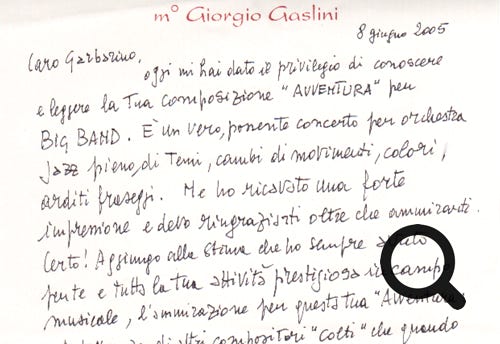 m° Giorgio Gaslini
8 giugno 2005
Caro Garbarino,
oggi mi hai dato il privilegio di conoscere
e leggere la Tua composizione "AVVENTURA" per
BIG BAND. È un vero, ponente concerto per orchestra
Jazz pieno, di Temi, cambi di movimenti, colori,
arditi fraseggi. Me ho ricavato una forte
impressione e devo ringraziarti oltre che ammirarti.
Certo! Aggiungo alla stima che ho sempre avuto
per te e tutta la tua attività prestigiosa in campo
musicale, l'ammirazione per questa tua "Avventura"
di altri compositori "colti" che quando